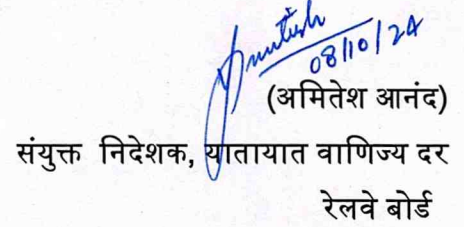 Amitesh
08/10/24
(अमितेश आनंद)
संयुक्त निदेशक, यातायात वाणिज्य दर
रेलवे बोर्ड